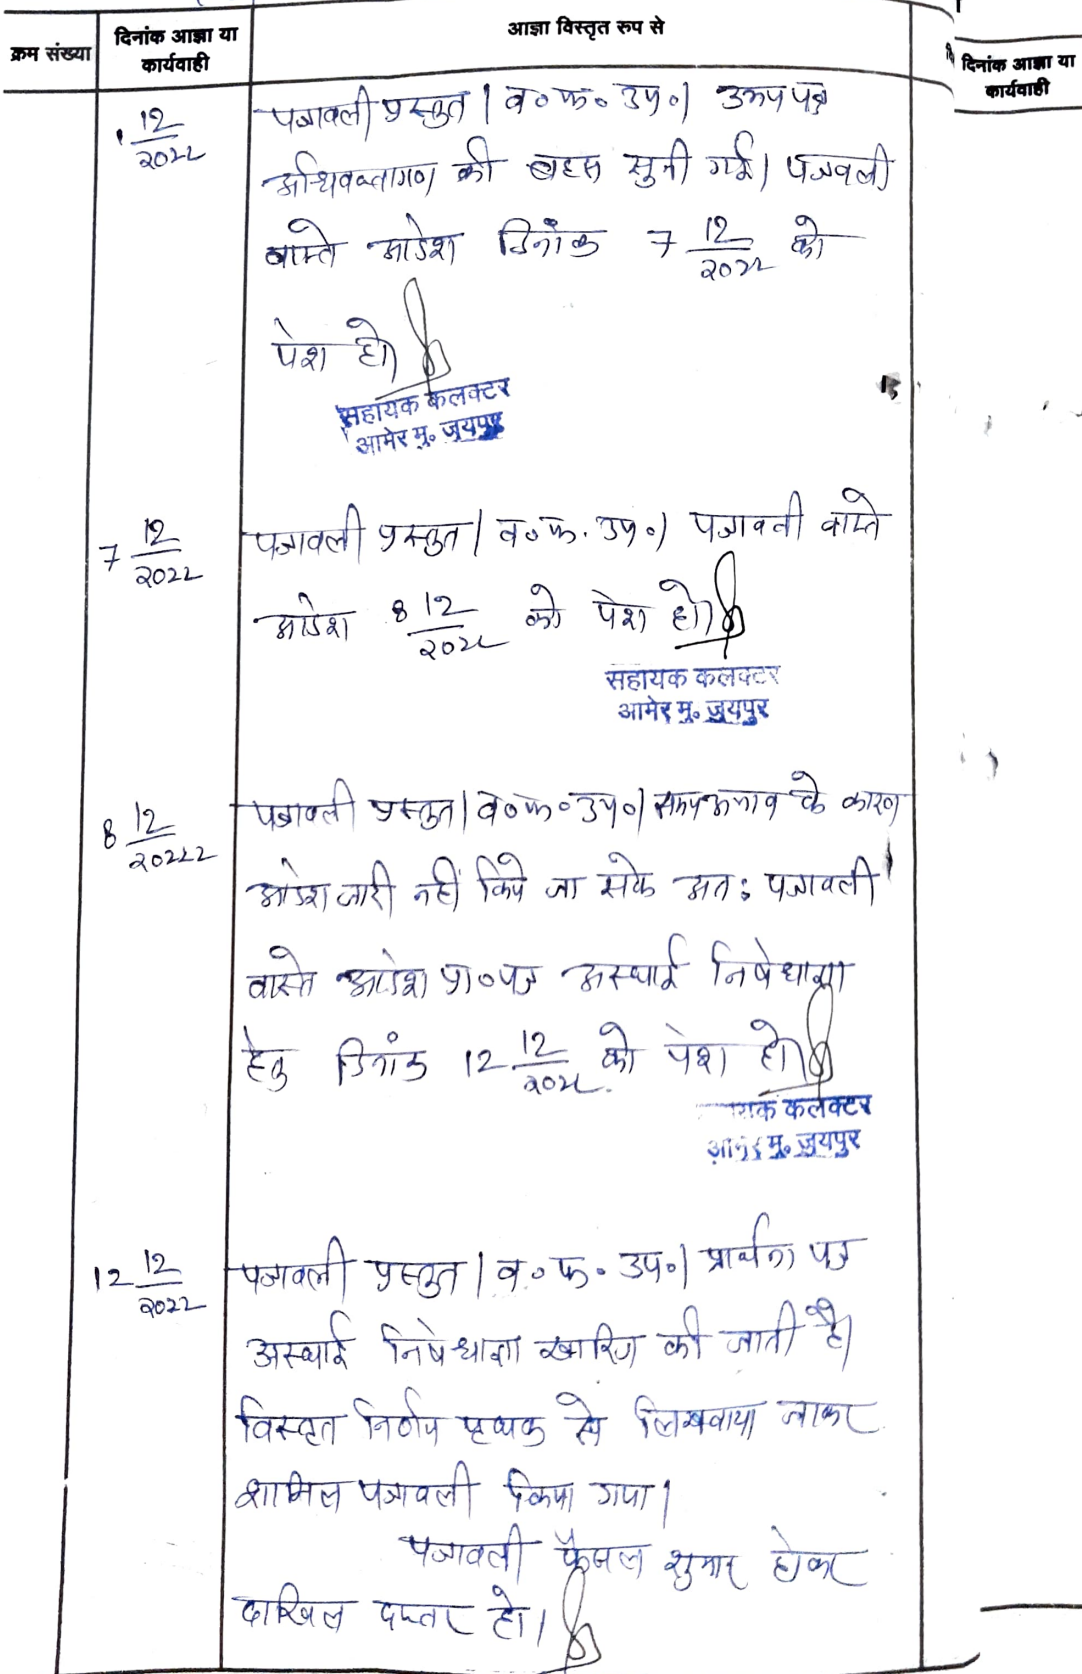 क्रम संख्या
दिनांक आज्ञा या
कार्यवाही
आज्ञा विस्तृत रूप से
दिनांक आज्ञा या
कार्यवाही
12/2022
पत्रावली प्रस्तुत। व॰ फ॰ उप॰। उभय पक्ष
अधिवक्तागण की बहस सुनी गई। पत्रावली
वास्ते आदेश दिनांक 7 12/2022 को
पेश हो।
सहायक कलक्टर
आमेर मु॰ जयपुर
7 12/2022
पत्रावली प्रस्तुत। व॰ फ. उप॰। पत्रावली वास्ते
आदेश 8 12/2022 को पेश हो।
सहायक कलक्टर
आमेर मु॰ जयपुर
8 12/20222
पत्रावली प्रस्तुत। व॰ फ॰ उप॰। समयअभाव के कारण
आदेश जारी नहीं किये जा सके अतः पत्रावली
वास्ते आदेश प्रा॰पत्र अस्थाई निषेधाज्ञा
हेतु दिनांक 12 12/2022 को पेश हो।
कलक्टर
मु॰ जयपुर
12 12/2022
पत्रावली प्रस्तुत। व॰ फ॰ उप॰। प्रार्थना पत्र
अस्थाई निषेधाज्ञा खारिज की जाती है।
विस्तृत निर्णय पृथक से लिखवाया जाकर
शामिल पत्रावली किया गया।
पत्रावली फैसल शुमार होकर
दाखिल दफ्तर हो।